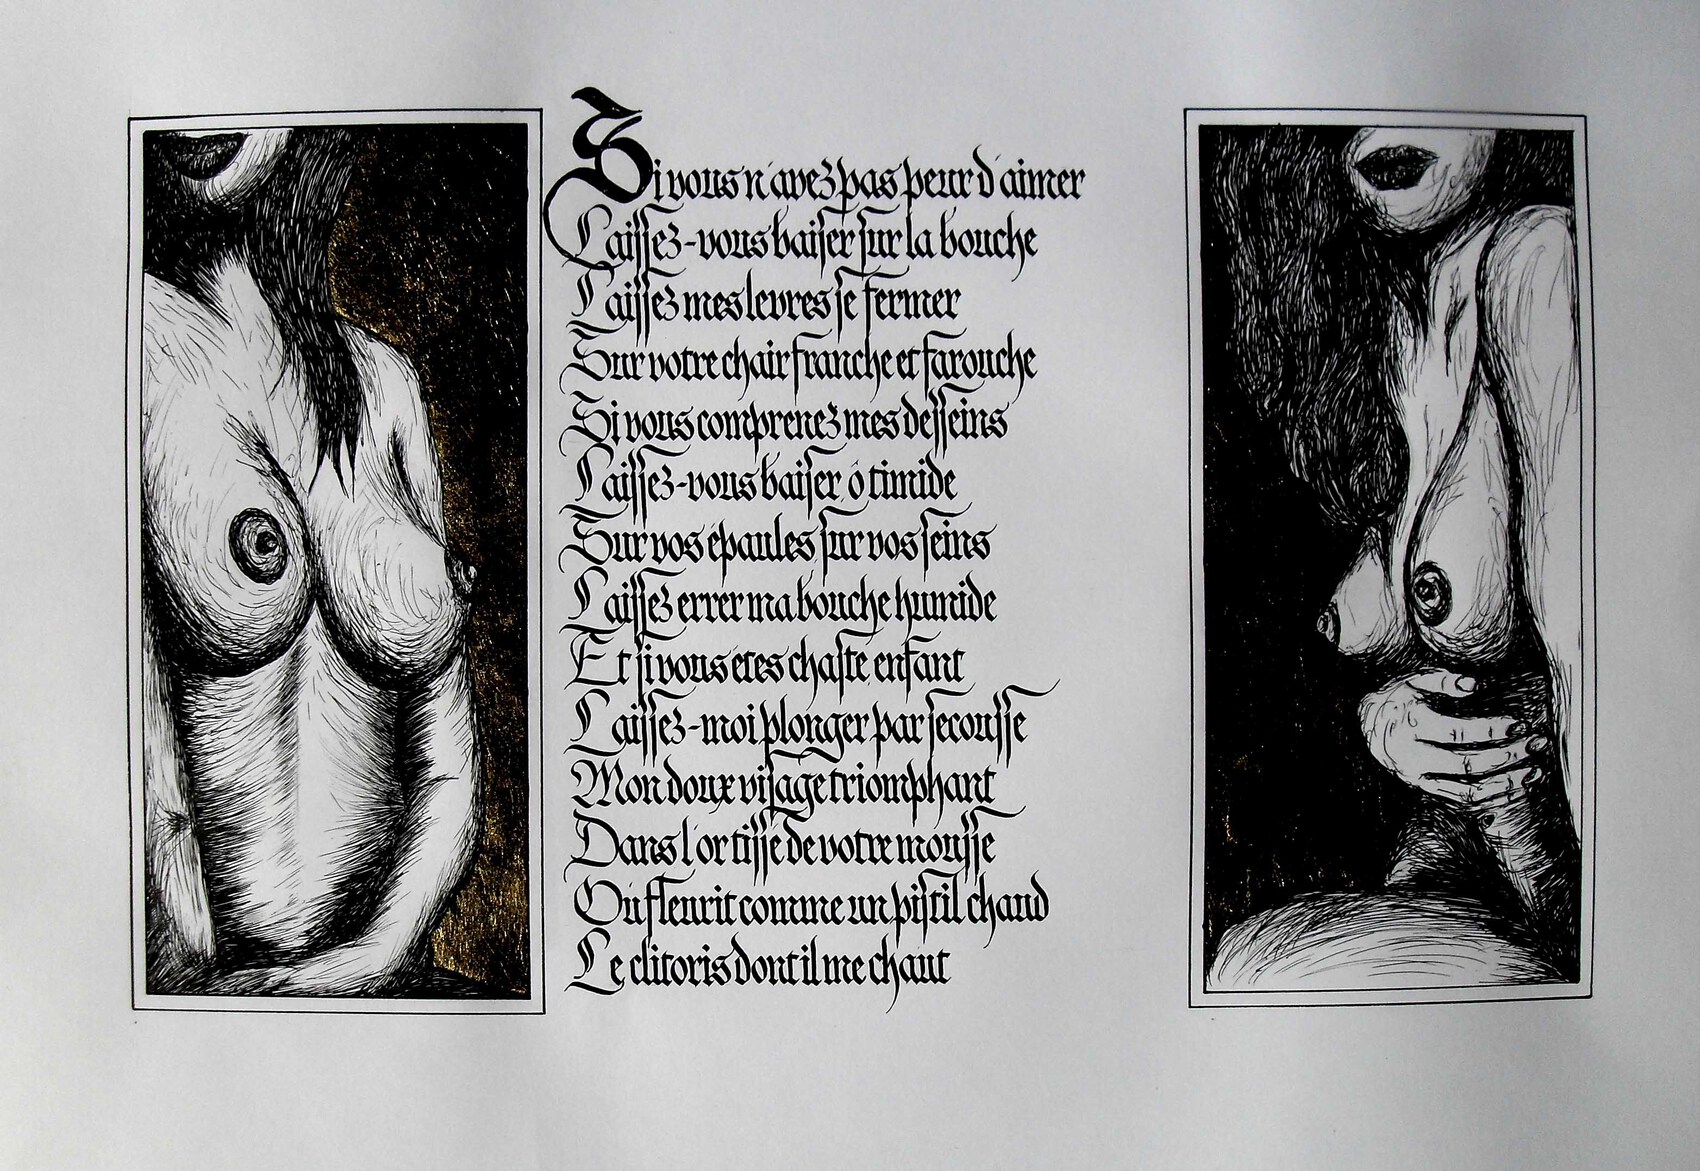 Si vous n'avez pas peur d'aimer
Laissez-vous baiser sur la bouche
Laissez mes levres se fermer
Sur votre chair franche et farouche
Si vous comprenez mes desseins
Laissez-vous baiser ô timide
Sur vos épaules sur vos seins
Laissez errer ma bouche humide
Et si vous etes chaste enfant
Laissez-moi plonger par secousse
Mon doux visage triomphant
Dans l'or tissé de votre mousse
Ou fleurit comme un pistil chaud
Le clitoris dont il me chaut